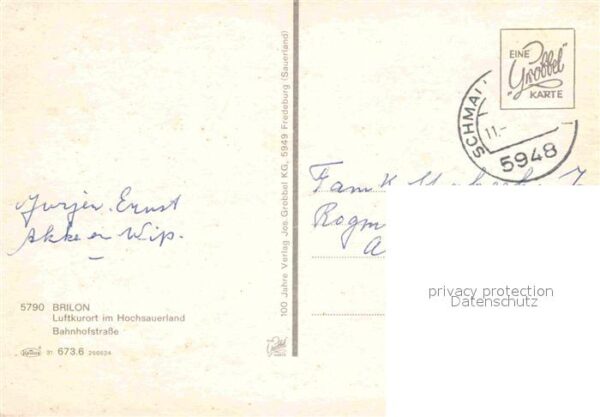 Jurjen. Ernst
Akke en Wip.
5790 BRILON
Luftkurort im Hochsauerland
Bahnhofstraße
31 673.6
100 Jahre Verlag Jos Grobbel KG, 5949 Fredeburg (Sauerland)
EINE
"Grobbel"
KARTE
SCHMAL
11.-
5948
Fam
Rogm
A
privacy protection
Datenschutz